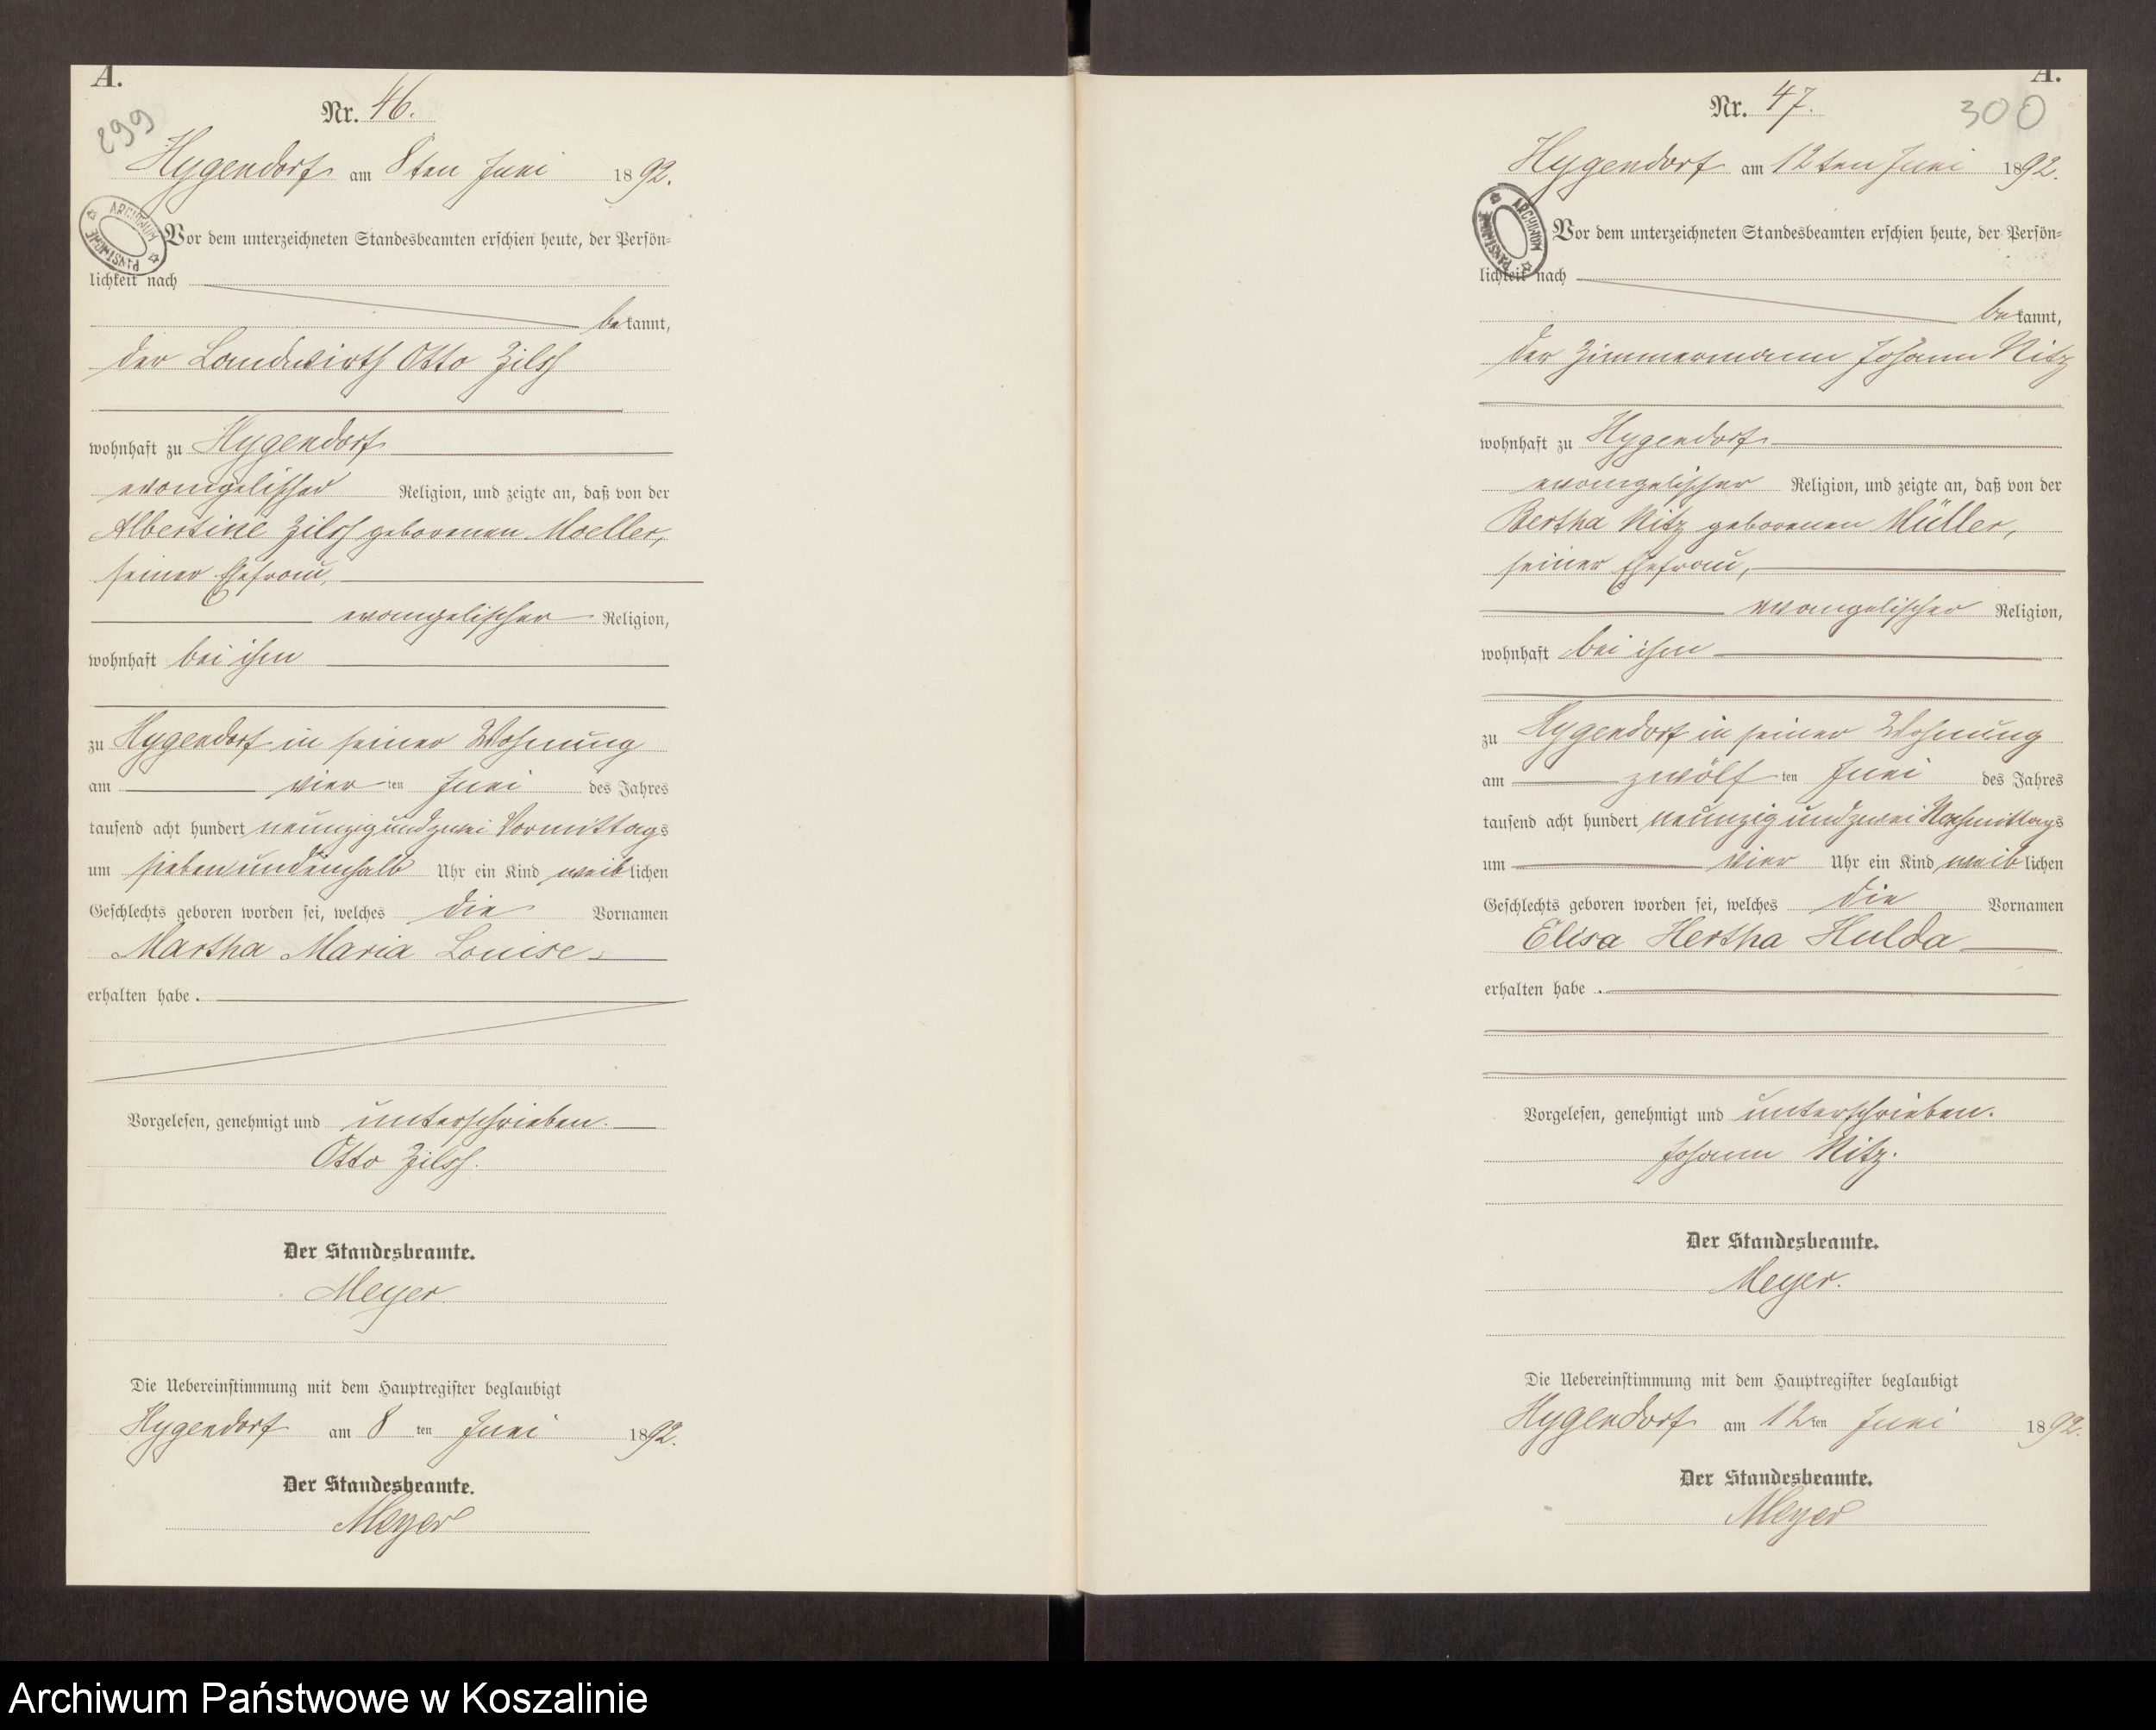 A.
299
Nr. 46.
Hygendorf am 8ten Juni 1892.
ARCHIWUM PAŃSTWOWE
Vor dem unterzeichneten Standesbeamten erschien heute, der Persön-
lichkeit nach
bekannt,
der Landwirth Otto Zilch
wohnhaft zu Hygendorf
evangelischer Religion, und zeigte an, daß von der
Albertine Zilch geborenen Moeller,
seiner Ehefrau,
evangelischer Religion,
wohnhaft bei ihm
zu Hygendorf in seiner Wohnung
am vier ten Juni des Jahres
tausend acht hundert neunzig und zwei Vormittags
um sieben undeinhalb Uhr ein Kind weiblichen
Geschlechts geboren worden sei, welches die Vornamen
Martha Maria Louise
erhalten habe.
Vorgelesen, genehmigt und unterschrieben.
Otto Zilch.
Der Standesbeamte.
Meyer.
Die Uebereinstimmung mit dem Hauptregister beglaubigt
Hygendorf am 8 ten Juni 1892.
Der Standesbeamte.
Meyer
A.
300
Nr. 47.
Hygendorf am 12ten Juni 1892.
ARCHIWUM PAŃSTWOWE
Vor dem unterzeichneten Standesbeamten erschien heute, der Persön-
lichkeit nach
bekannt,
der Zimmermann Johann Nitz
wohnhaft zu Hygendorf
evangelischer Religion, und zeigte an, daß von der
Bertha Nitz geborenen Müller,
seiner Ehefrau,
evangelischer Religion,
wohnhaft bei ihm
zu Hygendorf in seiner Wohnung
am zwölf ten Juni des Jahres
tausend acht hundert neunzig und zwei Nachmittags
um vier Uhr ein Kind weiblichen
Geschlechts geboren worden sei, welches die Vornamen
Elisa Hertha Hulda
erhalten habe.
Vorgelesen, genehmigt und unterschrieben.
Johann Nitz.
Der Standesbeamte.
Meyer.
Die Uebereinstimmung mit dem Hauptregister beglaubigt
Hygendorf am 12 ten Juni 1892.
Der Standesbeamte.
Meyer
Archiwum Państwowe w Koszalinie